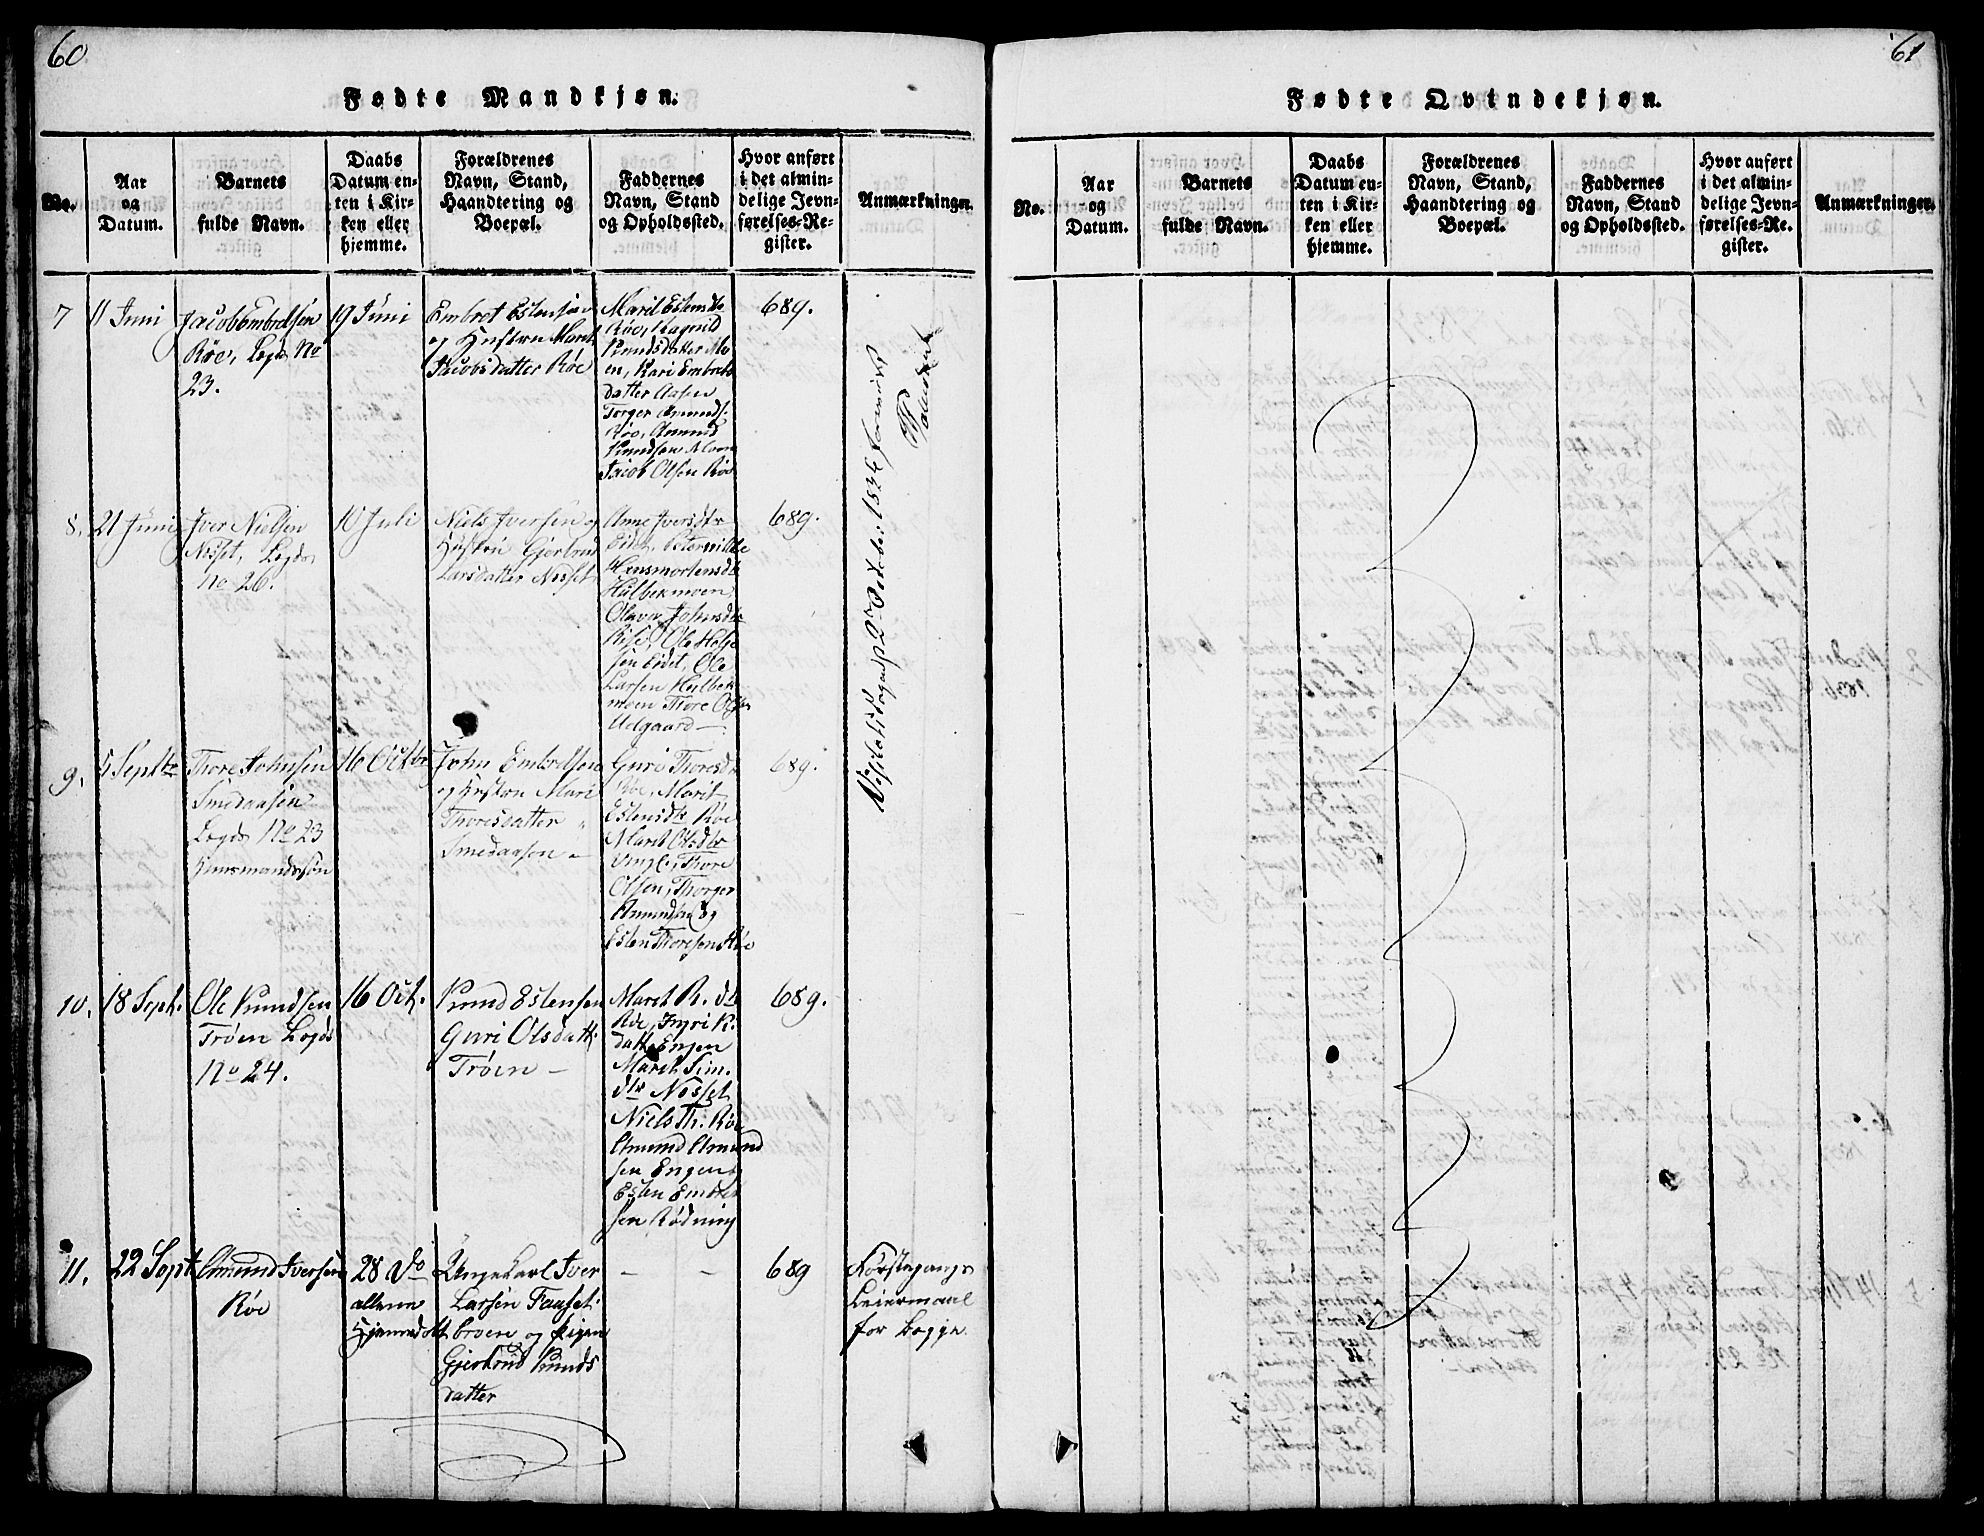 60
Fødte Mandkjøn.
No.
Aar
og
Datum.
Barnets
fulde Navn.
Daabs
Datum en-
ten i Kir-
ken eller
hjemme.
Forældrenes
Navn, Stand,
Haandtering og
Boepæl.
Faddernes
Navn, Stand
og Opholdssted.
Hvor anført
i det almin-
delige Jevn-
førelses-Re-
gister.
Anmærkninger.
7
11 Juni
Jacob Embretsen
Røe, Legds No
23.
19 Juni
Embret Estensen
og Hustru Marit
Jacobsdatter Røe
Marit Estensdtr
Røe, Ragnild
Knudsdatter Mo-
en, Kari Embrets
datter Aasen
Torger Amunds.
Røe, Amund
Knudsen Moen
Jacob Olsen Røe
689.
8.
21 Juni
Iver Nielsen
Nesset, Legds
No 26.
10 Juli
Niels Iversen og
Hustru Gjertrud
Larsdatter Nesset
Anne Iversdtr
Eidet,
Hansmortensdtr
Hulbekmoen,
Johnsdtr
Ole Helge
sen Eidet, Ole
Larsen Hulbek
moen Thore Olsen
Udgaard —
689.
9.
5 Septbr
Thore Johnsen
Smedaasen
Legds No 23
Huusmandssøn
16 Octbr
John Embretsen
og Hustru Mari
Thoresdatter
Smedaasen —
Guri Thoresdtr
Røe, Marit
Estensdtr Røe
Marit Olsdtr
Thore
Olsen, Thorger
Amundsen og
Esten Thoresen Røe
689.
10.
18 Sept.
Ole Knudsen
Trøen Legds
No 24.
16 Oct.
Knud Estensen
Guri Olsdatt.
Trøen —
Marit R. dtr
Røe, Ingri K.
datt. Engen
Marit Sim.
dtr Nesset
Niels Th. Røe
Amund Amund
sen Engen og
Esten Embret
sen Rødning
689.
11.
22 Sept.
Amund Iversen
Røe
28 Do
allene
Hjemmedøbt
Ungekarl Iver
Larsen Fauset.
broen og Pigen
Gjertrud Knuds
datter
— —
689
Førstegangs
Leiermaal
for begge.
Visitatsdagen, 2 October 1836
61
Fødte Qvindekjøn.
No.
Aar
og
Datum.
Barnets
fulde Navn.
Daabs
Datum en-
ten i Kir-
ken eller
hjemme.
Forældrenes
Navn, Stand,
Haandtering og
Boepæl.
Faddernes
Navn, Stand
og Opholdssted.
Hvor anført
i det almin-
delige Jevn-
førelses-Re-
gister.
Anmærkninger.